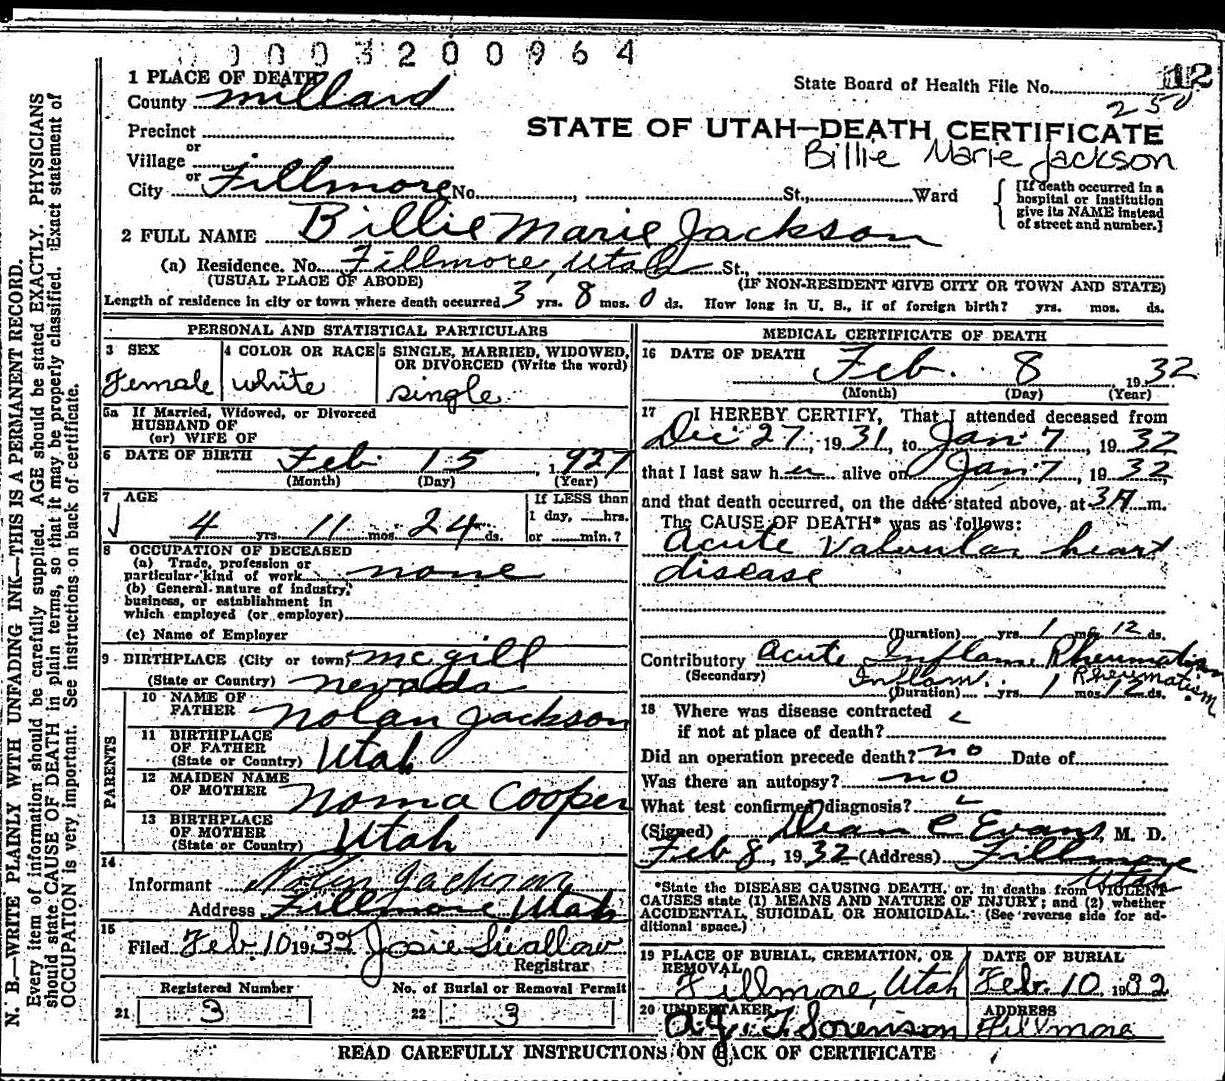 0003200964
12
State Board of Health File No.
250
1 PLACE OF DEATH
County Millard
Precinct
or
Village
or
City Fillmore No. , St., Ward
STATE OF UTAH—DEATH CERTIFICATE
Billie Marie Jackson
[If death occurred in a
hospital or Institution
give its NAME instead
of street and number.]
2 FULL NAME Billie Marie Jackson
(a) Residence. No. Fillmore, Utah St.,
(USUAL PLACE OF ABODE) (IF NON-RESIDENT GIVE CITY OR TOWN AND STATE)
Length of residence in city or town where death occurred 3 yrs. 8 mos. 0 ds. How long in U. S., if of foreign birth? yrs. mos. ds.
PERSONAL AND STATISTICAL PARTICULARS
3 SEX
Female
4 COLOR OR RACE
white
5 SINGLE, MARRIED, WIDOWED,
OR DIVORCED (Write the word)
single
5a If Married, Widowed, or Divorced
HUSBAND OF
(or) WIFE OF
6 DATE OF BIRTH Feb 15, 1927
(Month) (Day) (Year)
7 AGE
4 yrs. 11 mos. 24 ds.
If LESS than
1 day, hrs.
or min.?
8 OCCUPATION OF DECEASED
(a) Trade, profession or
particular kind of work none
(b) General nature of industry,
business, or establishment in
which employed (or employer)
(c) Name of Employer
9 BIRTHPLACE (City or town) McGill
(State or Country) Nevada
PARENTS
10 NAME OF
FATHER Nolan Jackson
11 BIRTHPLACE
OF FATHER
(State or Country) Utah
12 MAIDEN NAME
OF MOTHER Noma Cooper
13 BIRTHPLACE
OF MOTHER
(State or Country) Utah
14
Informant Nolan Jackson
Address Fillmore Utah
15
Filed Feb 10 1932 Josie Swallow
Registrar
Registered Number
21 3
No. of Burial or Removal Permit
22 3
MEDICAL CERTIFICATE OF DEATH
16 DATE OF DEATH Feb. 8, 1932
(Month) (Day) (Year)
17 I HEREBY CERTIFY, That I attended deceased from
Dec 27, 1931, to Jan 7, 1932
that I last saw her alive on Jan 7, 1932
and that death occurred, on the date stated above, at 3 A m.
The CAUSE OF DEATH* was as follows:
Acute Valvular heart
disease
(Duration) yrs. 1 mos. 12 ds.
Contributory Acute Inflam. Rheumatism
(Secondary) Inflam. Rheumatism
(Duration) yrs. 1 mos. 12 ds.
18 Where was disease contracted
if not at place of death?
Did an operation precede death? no Date of
Was there an autopsy? no
What test confirmed diagnosis?
(Signed) Dean C Evans, M. D.
Feb 8, 1932 (Address) Fillmore
Utah
*State the DISEASE CAUSING DEATH, or, in deaths from VIOLENT
CAUSES state (1) MEANS AND NATURE OF INJURY; and (2) whether
ACCIDENTAL, SUICIDAL OR HOMICIDAL. (See reverse side for ad-
ditional space.)
19 PLACE OF BURIAL, CREMATION, OR
REMOVAL
Fillmore, Utah
DATE OF BURIAL
Feb. 10, 1932
20 UNDERTAKER
Sorenson
ADDRESS
Fillmore
READ CAREFULLY INSTRUCTIONS ON BACK OF CERTIFICATE
N. B.—WRITE PLAINLY WITH UNFADING INK—THIS IS A PERMANENT RECORD.
Every item of information should be carefully supplied. AGE should be stated EXACTLY. PHYSICIANS
should state CAUSE OF DEATH in plain terms, so that it may be properly classified. Exact statement of
OCCUPATION is very important. See instructions on back of certificate.